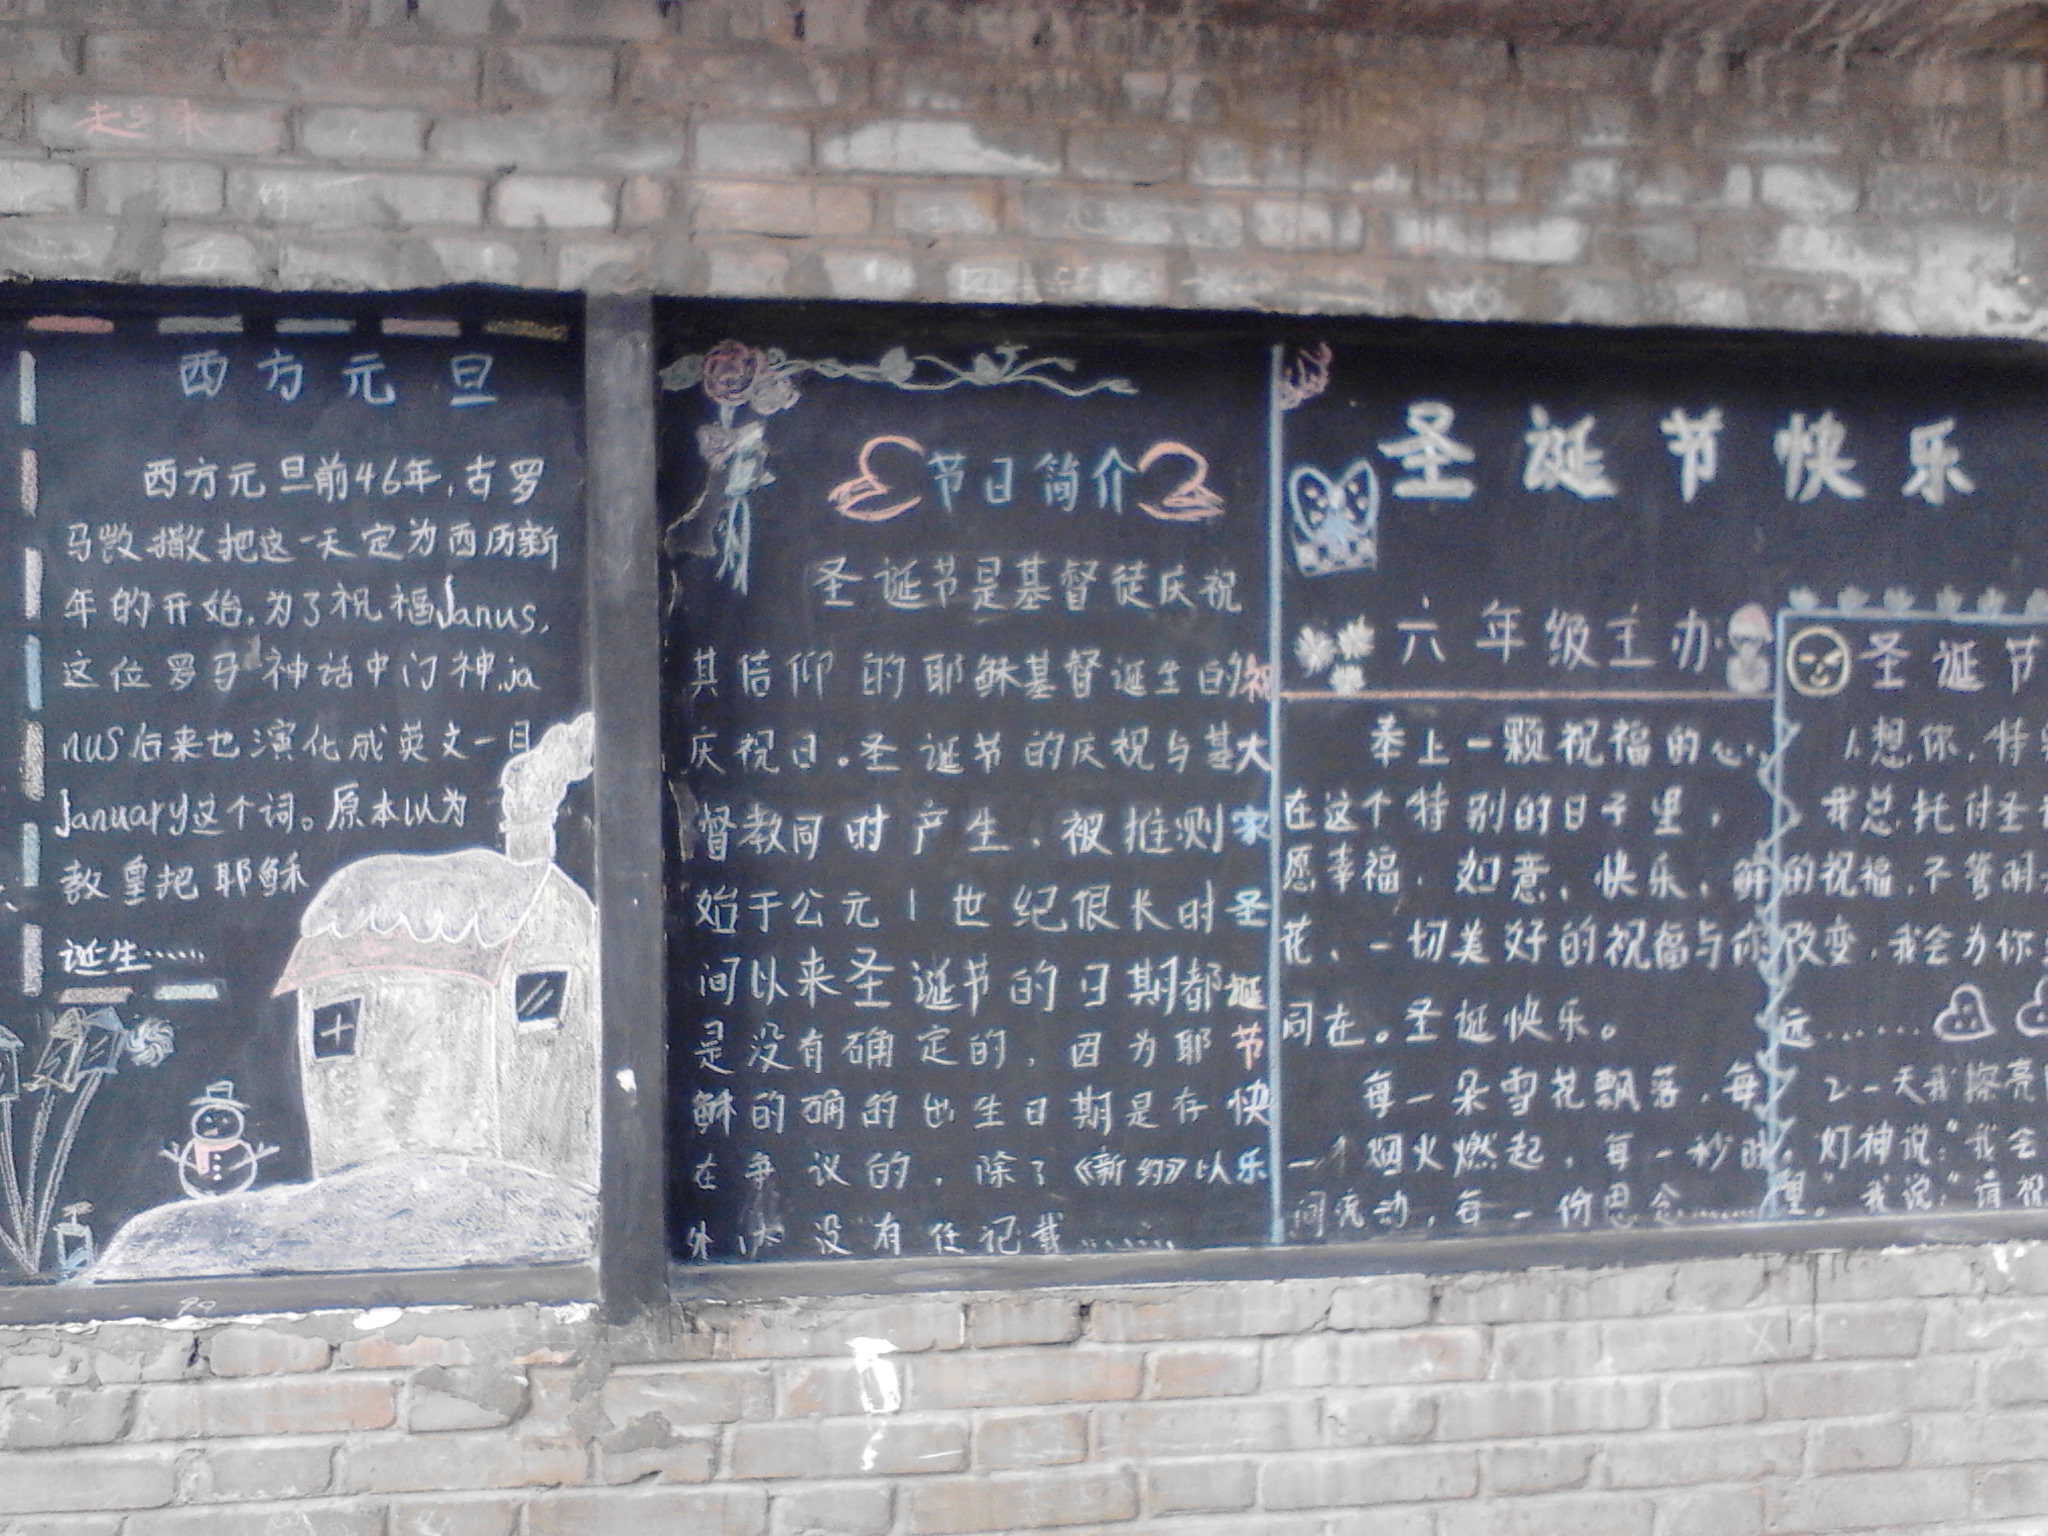 西方元旦
西方元旦前46年,古罗
马凯撒把这一天定为西历新
年的开始.为了祝福Janus,
这位罗马神话中门神,ja
nus后来也演化成英文一月
January这个词。原本以为
教皇把耶稣
诞生……
节日简介
圣诞节是基督徒庆祝
其信仰的耶稣基督诞生日的
庆祝日。圣诞节的庆祝与基
督教同时产生.被推测
始于公元1世纪很长时
间以来圣诞节的日期都
是没有确定的,因为耶
稣的确的出生日期是存
在争议的.除了《新约》以
外 没有任记载……
祝大家圣诞节快乐
圣诞节快乐
六年级主办
奉上一颗祝福的心,
在这个特别的日子里,
愿幸福.如意、快乐、鲜
花、一切美好的祝福与你
同在。圣诞快乐。
每一朵雪花飘落,每
一个烟火燃起,每一秒时
间流动,每一份思念……
圣诞节
1.想你,特
我总托付圣
的祝福,不管明
改变,我会为你
远……
2一天我擦亮
灯神说:"我会
望。"我说:"请祝